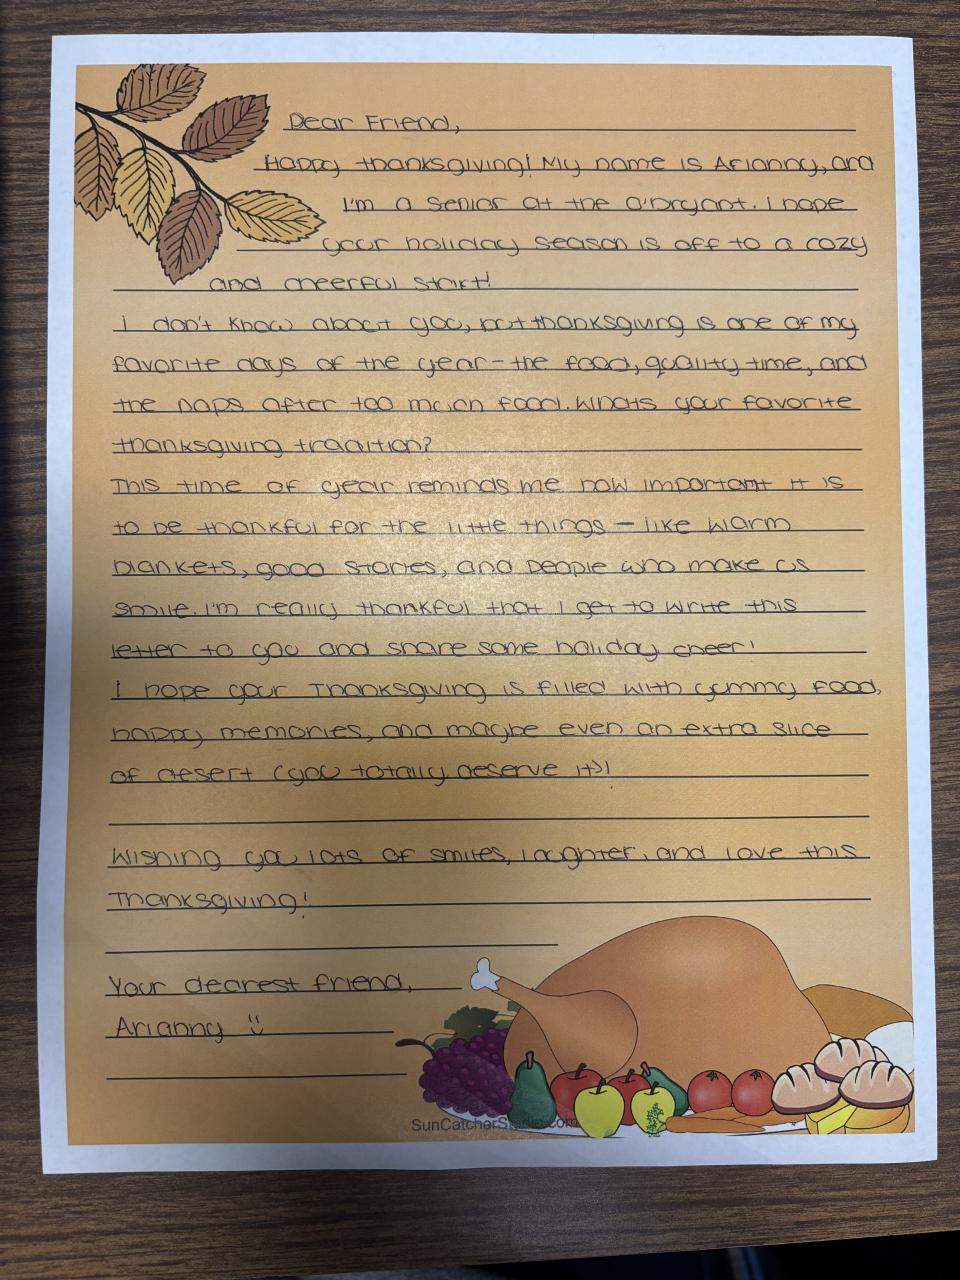 Dear Friend,
Happy thanksgiving! My name is Arianny, and
I'm a senior at the O'bryant. I hope
your holiday season is off to a cozy
and cheerful start!
I don't know about you, but thanksgiving is one of my
favorite days of the year - the food, quality time, and
the naps after too much food. Whats your favorite
thanksgiving tradition?
This time of year reminds me how important it is
to be thankful for the little things - like warm
blankets, good stories, and people who make us
smile. I'm really thankful that I get to write this
letter to you and share some holiday cheer!
I hope your Thanksgiving is filled with yummy food,
happy memories, and maybe even an extra slice
of desert (you totally deserve it)!
Wishing you lots of smiles, laughter, and love this
Thanksgiving!
Your dearest friend,
Arianny
SunCatcherStudio.com